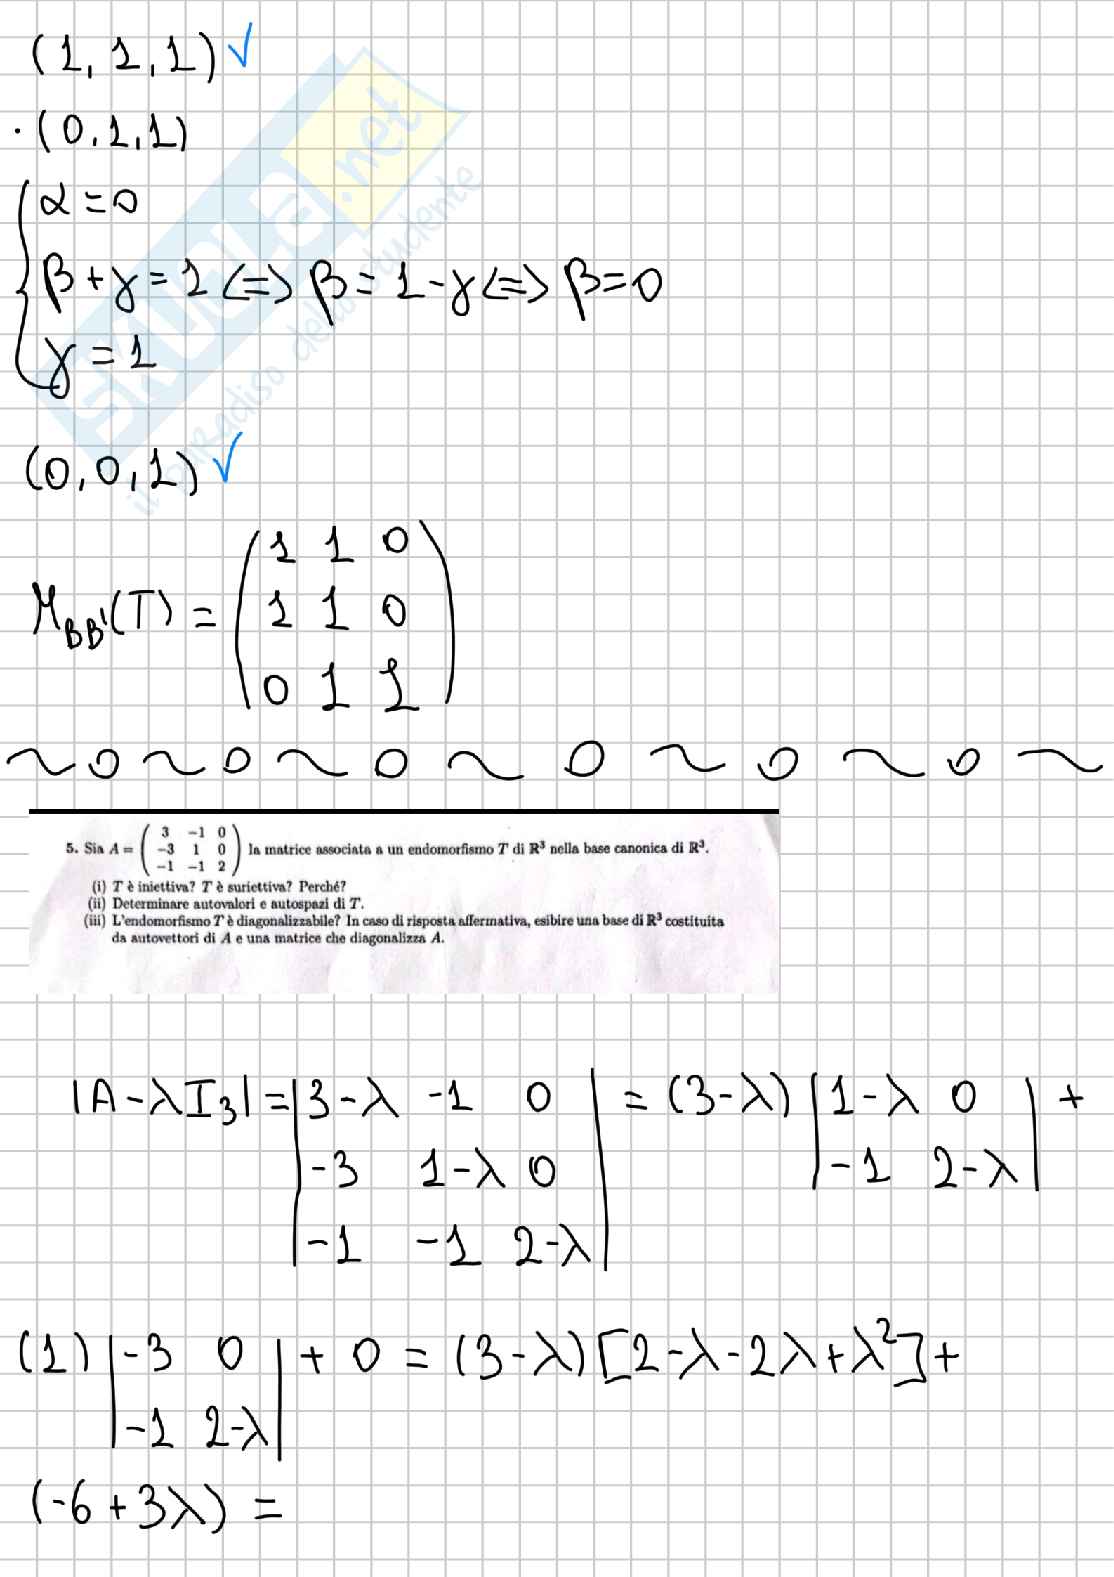 (1, 1, 1) ✓
· (0, 1, 1)
{ α = 0
β + γ = 1 <=> β = 1 - γ <=> β = 0
γ = 1
(0, 0, 1) ✓
M_BB'(T) = ( 1 1 0
1 1 0
0 1 1 )
SKUOLA.net
il paradiso dello studente
5. Sia A = ( 3 -1 0
-3 1 0
-1 -1 2 ) la matrice associata a un endomorfismo T di R³ nella base canonica di R³.
(i) T è iniettiva? T è suriettiva? Perché?
(ii) Determinare autovalori e autospazi di T.
(iii) L'endomorfismo T è diagonalizzabile? In caso di risposta affermativa, esibire una base di R³ costituita
da autovettori di A e una matrice che diagonalizza A.
|A - λI₃| = | 3-λ -1 0 | = (3-λ) | 1-λ 0 | +
| -3 1-λ 0 | | -1 2-λ |
| -1 -1 2-λ |
(1) | -3 0 | + 0 = (3-λ) [2-λ-2λ+λ²] +
| -1 2-λ |
(-6 + 3λ) =